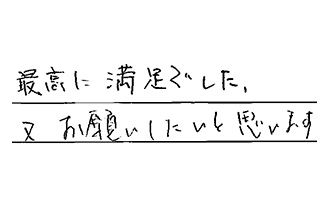 最高に満足でした、
又お願いしたいと思います